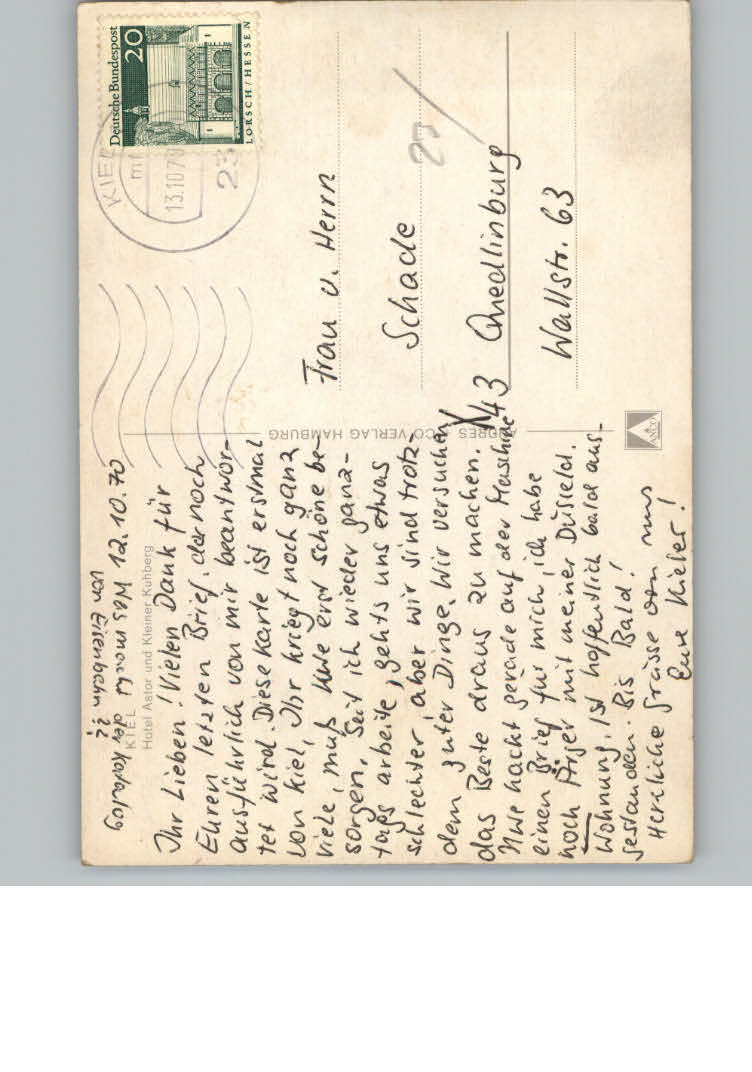 Was macht der Katalog
von Eisenbahn ??
12.10.70
KIEL
Hotel Astor und Kleiner Kuhberg
Ihr Lieben! Vielen Dank für
Euren letzten Brief, der noch
ausführlich von mir beantwor-
tet wird. Diese Karte ist erstmal
von Kiel, Ihr kriegt noch ganz
viele, muß Uwe erst schöne be-
sorgen. Seit ich wieder ganz-
tags arbeite, gehts uns etwas
schlechter, aber wir sind trotz-
dem guter Dinge. Wir versuchen
das Beste draus zu machen.
Uwe hackt gerade auf der Maschine
einen Brief für mich, ich habe
noch Ärger mit meiner Düsseld.
Wohnung, ist hoffentlich bald aus-
gestanden. Bis Bald!
Herzliche Grüsse von uns
Eure Kieler!
ANDRES + CO VERLAG HAMBURG
ANCO
Deutsche Bundespost
20
LORSCH/HESSEN
KIEL
13.10.70
23
Frau u. Herrn
Schade
25
X 43 Quedlinburg
Wallstr. 63